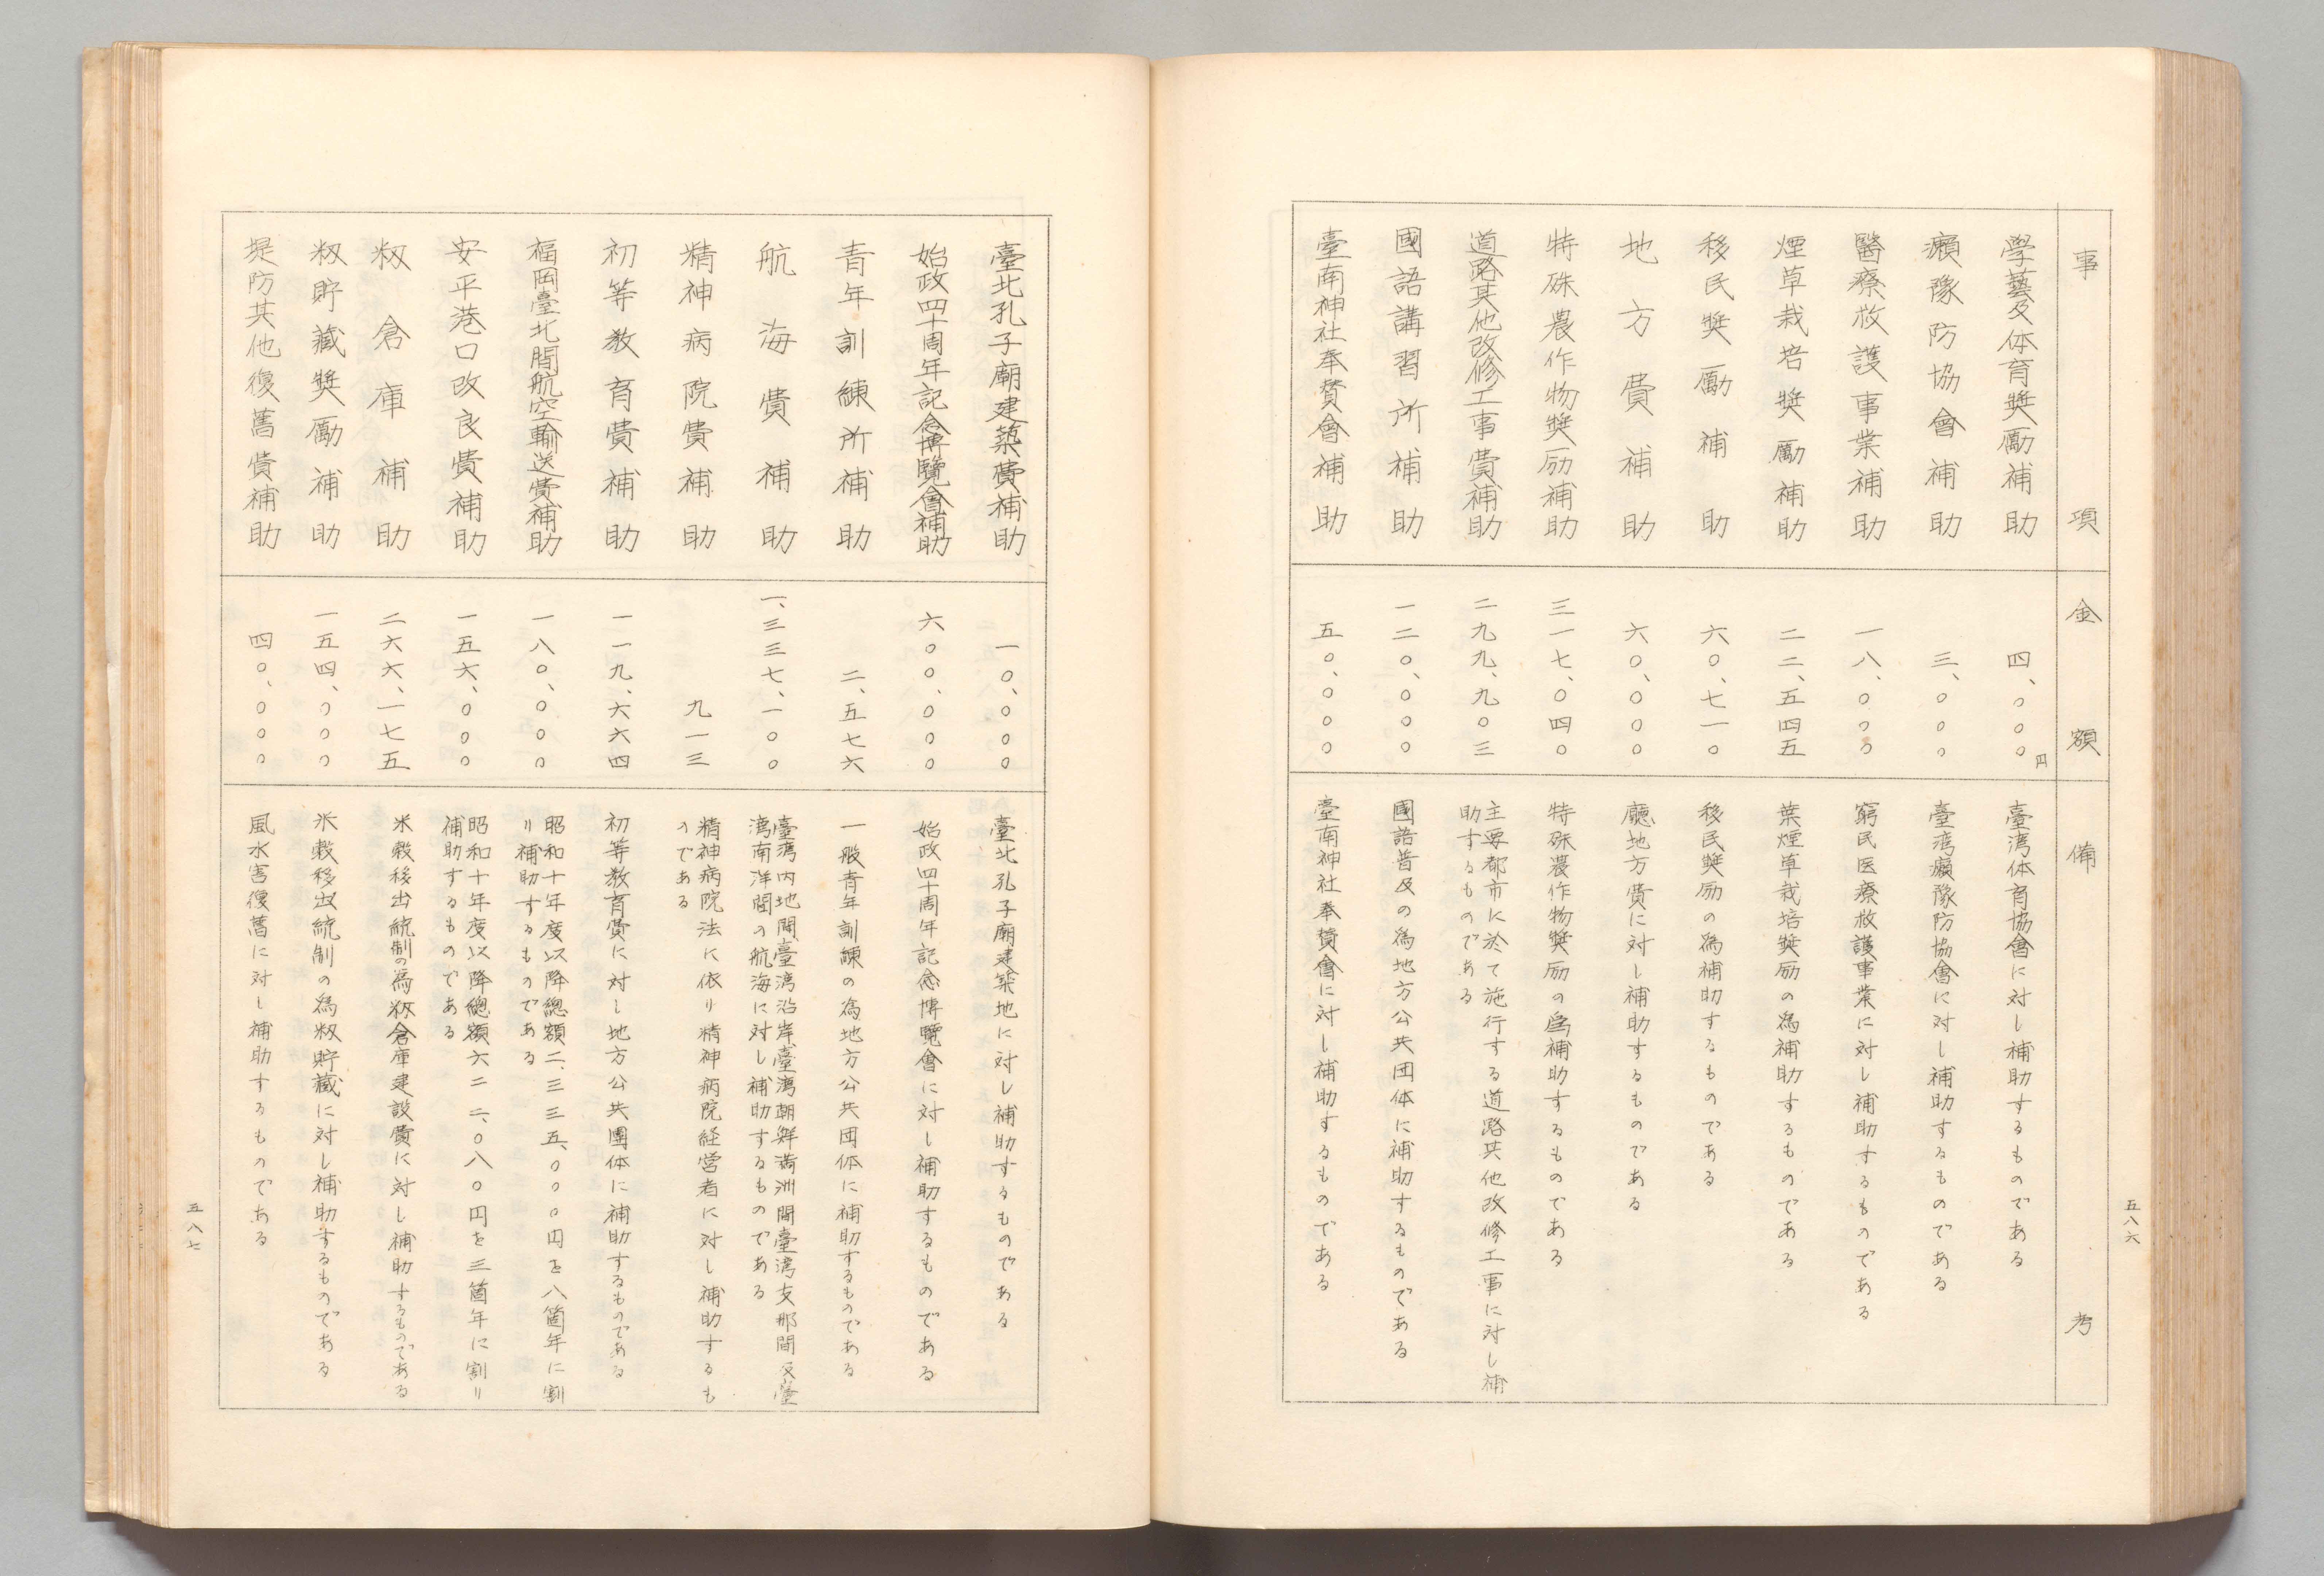 事項
金額
備考
學藝及体育奬勵補助
四、〇〇〇円
臺湾体育協會に対し補助するものである
癩豫防協會補助
三、〇〇〇
臺湾癩豫防協會に対し補助するものである
醫療救護事業補助
一八、〇〇〇
窮民医療救護事業に対し補助するものである
煙草栽培奬勵補助
二二、五四五
葉煙草栽培奬励の為補助するものである
移民奬勵補助
六〇、七一〇
移民奬励の為補助するものである
地方費補助
六〇、〇〇〇
廳地方費に対し補助するものである
特殊農作物奬励補助
三一七、〇四〇
特殊農作物奬励の為補助するものである
道路其他改修工事費補助
二九九、九〇三
主要都市に於て施行する道路其他改修工事に対し補
助するものである
國語講習所補助
一二〇、〇〇〇
國語普及の為地方公共団体に補助するものである
臺南神社奉賛會補助
五〇、〇〇〇
臺南神社奉賛會に対し補助するものである
五八六
臺北孔子廟建築費補助
一〇、〇〇〇
臺北孔子廟建築地に対し補助するものである
始政四十周年記念博覽會補助
六〇〇、〇〇〇
始政四十周年記念博覽會に対し補助するものである
青年訓練所補助
二、五七六
一般青年訓練の為地方公共団体に補助するものである
航海費補助
一、三三七、一〇〇
臺湾内地間臺湾沿岸臺湾朝鮮満洲間臺湾支那間及臺
湾南洋間の航海に対し補助するものである
精神病院費補助
九一三
精神病院法に依り精神病院経営者に対し補助するも
のである
初等教育費補助
一一九、六六四
初等教育費に対し地方公共團体に補助するものである
福岡臺北間航空輸送費補助
一八〇、〇〇〇
昭和十年度以降總額二、三三五、〇〇〇円を八箇年に割
り補助するものである
安平港口改良費補助
一五六、〇〇〇
昭和十年度以降總額六二二、〇八〇円を三箇年に割り
補助するものである
籾倉庫補助
二六六、一七五
米穀移出統制の為籾倉庫建設費に対し補助するものである
籾貯藏奬勵補助
一五四、〇〇〇
米穀移出統制の為籾貯藏に対し補助するものである
堤防其他復舊費補助
四〇、〇〇〇
風水害復舊に対し補助するものである
五八七